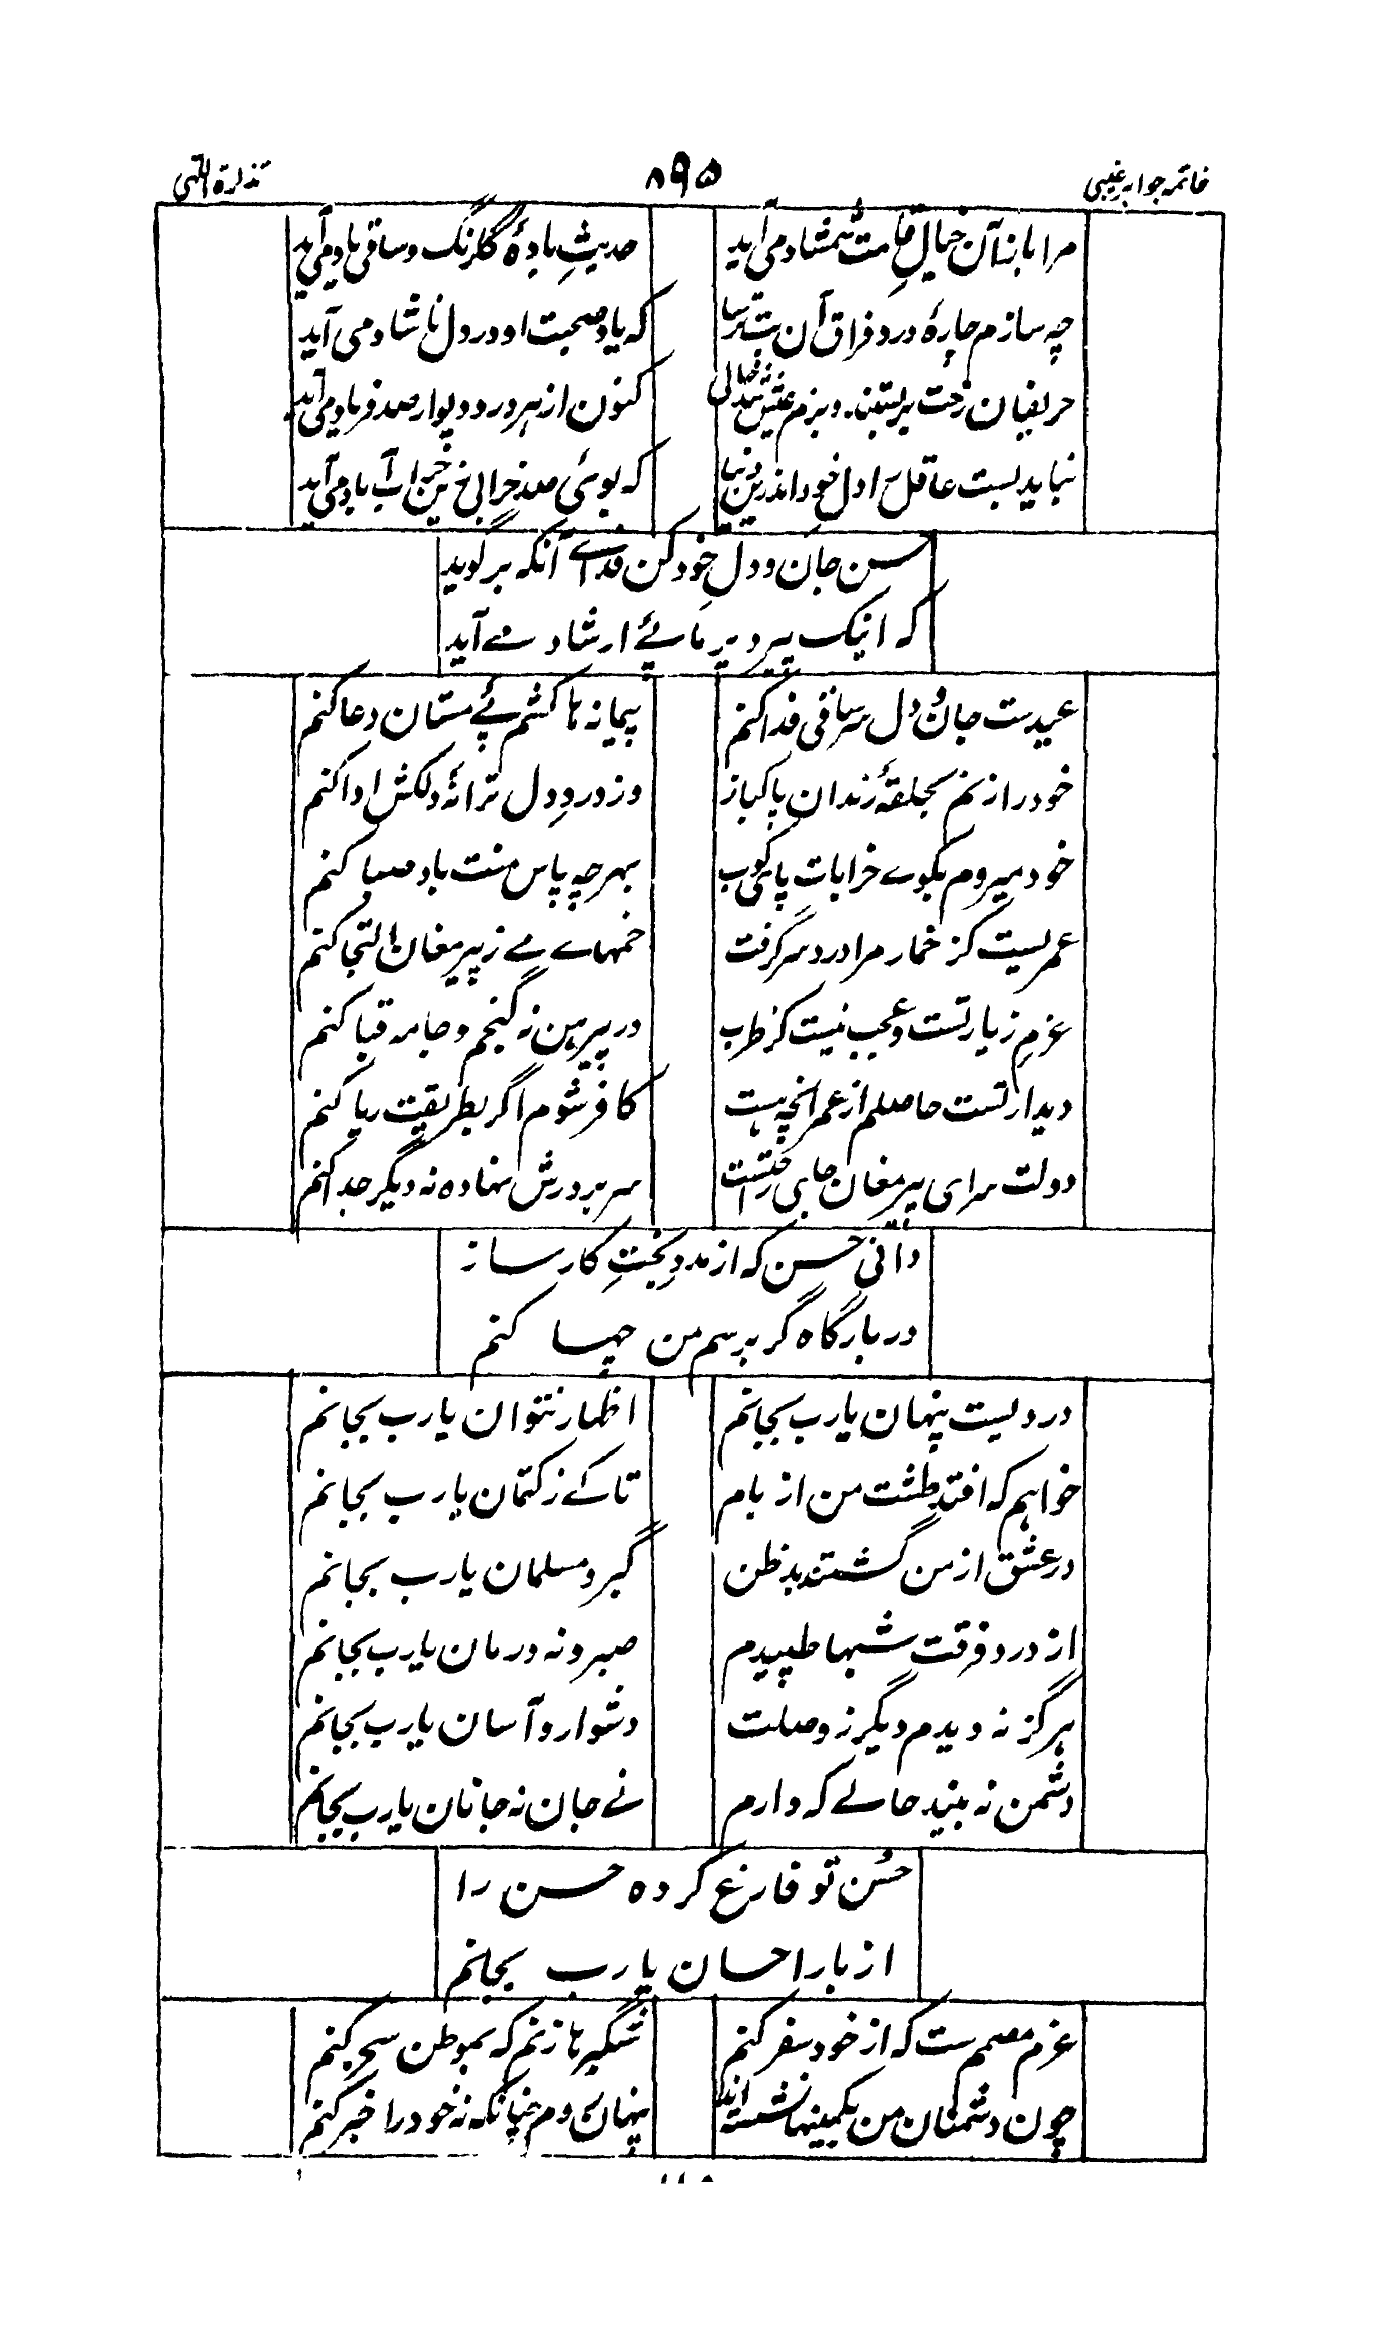 خاتمه جواهر غیبی
۸۹۵
تذکرة الٰہی
مرا باز آن خیالِ قامت شمشاد می آید
حدیثِ بادۂ گلرنگ و ساقی یاد می آید
چه سازم چارۂ درد فراق آن بت ترسا
که یاد صحبت او در دل ناشاد می آید
حریفان رخت بربستند و بزم عیش شد خالی
کنون از هر در و دیوار صد فریاد می آید
نباید بست عاقل را دل خود اندرین دنیا
که بوئی صد خرابی زین خراب آباد می آید
حسن جان و دلِ خود کن فداے آنکه برگوید
که اینک پیر دیر مائے ارشاد مے آید
عیدست جان و دل سر ساقی فدا کنم
پیمانه ها کشم پئے مستان دعا کنم
خود را زنم بحلقۂ رندان پاکباز
وز دردِ دل ترانۂ دلکش ادا کنم
خود میروم بکوے خرابات پای کوب
بهر چه پاس منت باد صبا کنم
عمریست کز خمار مرا درد سر گرفت
خمهاے مے ز پیر مغان التجا کنم
عزمِ زیارتست و عجب نیست کز طرب
در پیرهن نه گنجم و جامه قبا کنم
دیدار تست حاصلم از عمر انچه هست
کافر شوم اگر بطریقت ریا کنم
دولت سرای پیر مغان جای راحتست
سر بر درش نهاده نه دیگر جدا کنم
دانی حسن که از مددِ بختِ کارساز
در بارگاه گر برسم من چها کنم
دردیست پنهان یارب بجانم
اظهار نتوان یارب بجانم
خواهم که افتد طشت من از بام
تا کے ز کتمان یارب بجانم
در عشق از من گشتند بدظن
گبر و مسلمان یارب بجانم
از درد فرقت شبها طپیدم
صبر و نه درمان یارب بجانم
هرگز نه دیدم دیگر نه وصلت
دشوار و آسان یارب بجانم
دشمن نه بیند حالے که دارم
نے جان نه جانان یارب بجانم
حُسن تو فارغ کرده حسن را
از بار احسان یارب بجانم
عزم مصمم ست که از خود سفر کنم
شبگیر ها زنم که بموطن سحر کنم
چون دشمنان من بکمینها نشسته اند
پنهان روم چنانکه نه خود را خبر کنم